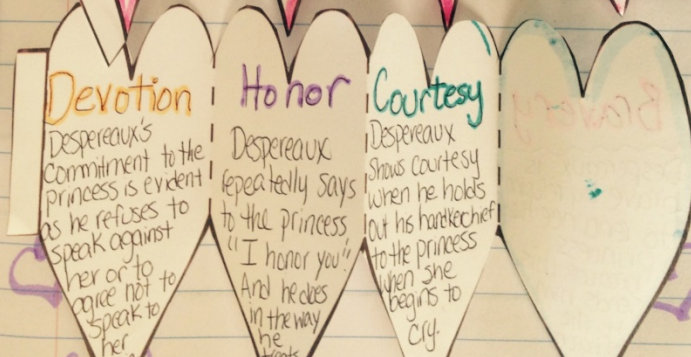 Devotion
Despereaux's
commitment to the
princess is evident
as he refuses to
speak against
her or to
agree not to
speak to
her
Honor
Despereaux
repeatedly says
to the princess
"I honor you"!
And he does
in the way
he
treats
Courtesy
Despereaux
shows courtesy
when he holds
out his handkerchief
to the princess
when she
begins to
cry.
Bravery